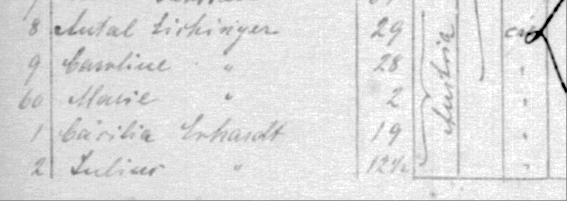 8 Antal Eichinger 29
9 Caroline " 28
60 Marie " 2
1 Cäcilia Erhardt 19
2 Julius " 12½
Austria